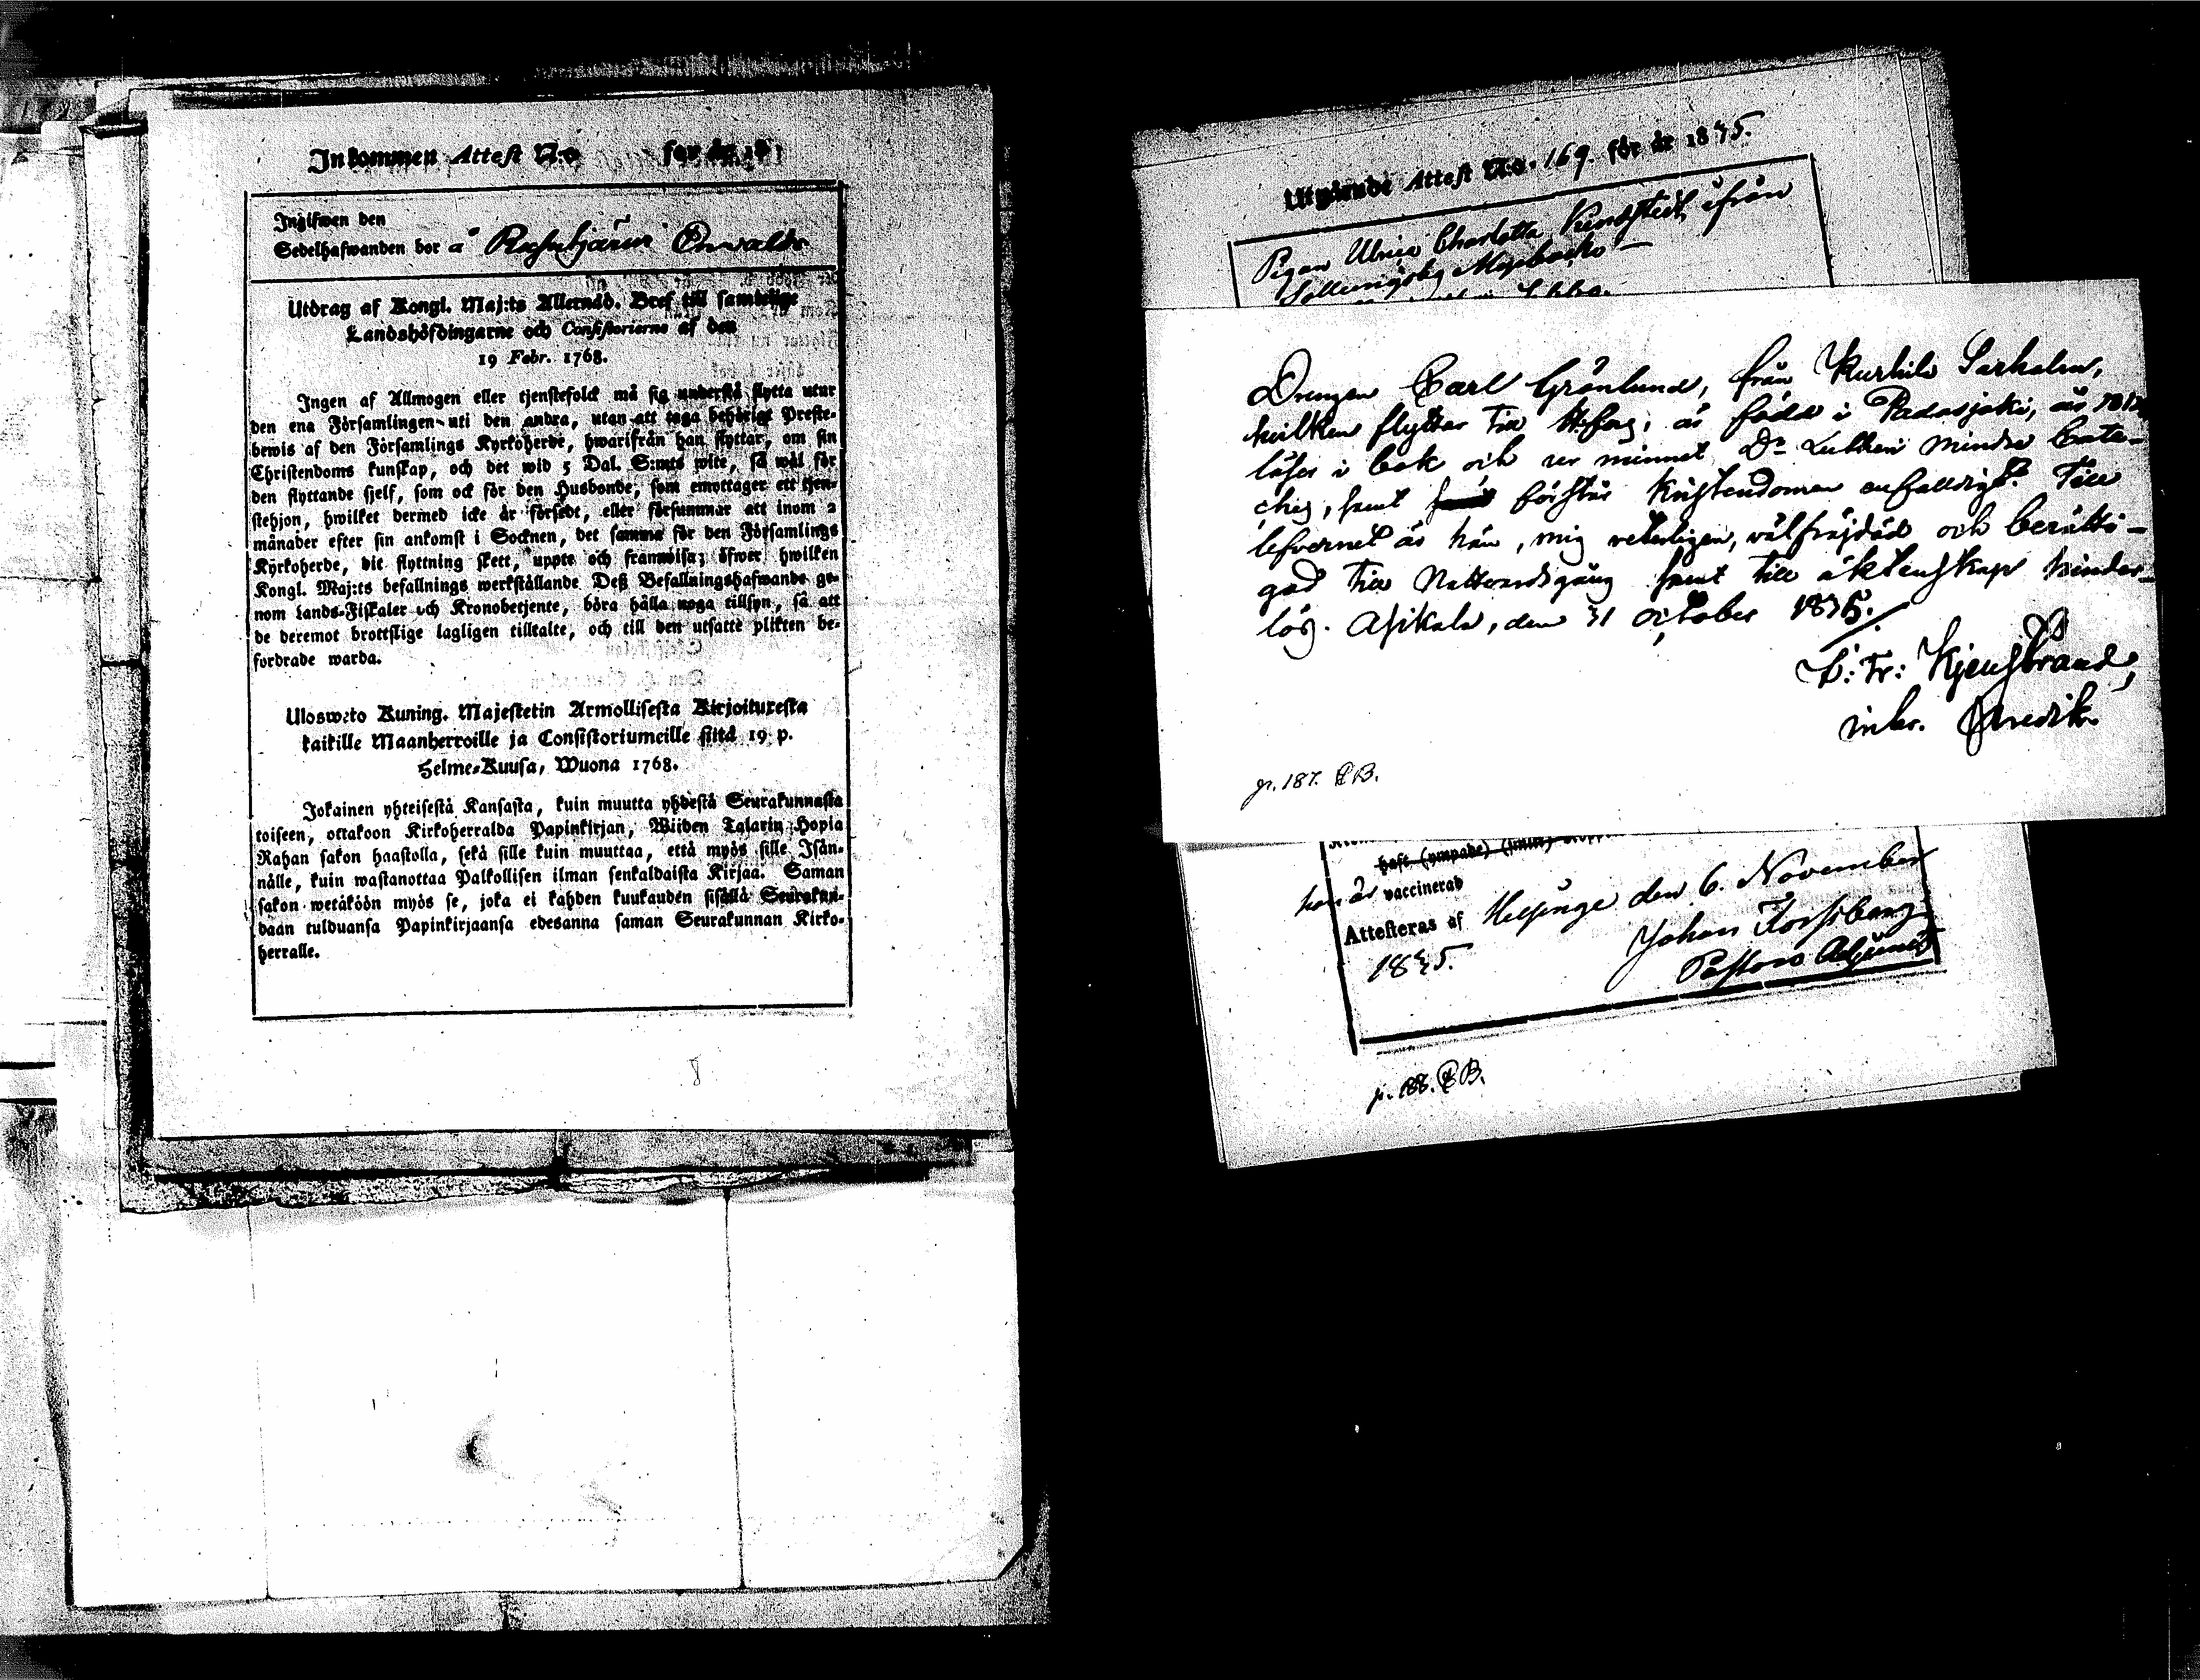 Inkommen Attest N:o för år 18
Ingifwen den
Sedelhafwanden bor å
Utdrag af Kongl. Maj:ts Allernåd. Bref till samtelige
Landshöfdingarne och Consistorierne af den
19 Febr. 1768.
Ingen af Allmogen eller tjenstefolck må sig understå flytta utur
den ena Församlingen uti den andra, utan att taga behörigt Preste-
bewis af den Församlings Kyrkoherde, hwarifrån han flyttar, om sin
Christendoms kunskap, och det wid 5 Dal. S:mts wite, så wäl för
den flyttande sjelf, som ock för den Husbonde, som emottager ett tjen-
stehjon, hwilket dermed icke är försedt, eller försummar att inom 2
månader efter sin ankomst i Socknen, det samma för den Församlings
Kyrkoherde, dit flyttning skett, uppte och framwisa; öfwer hwilken
Kongl. Maj:ts befallnings werkställande Deß Befallningshafwande ge-
nom Lands-Fiskaler och Kronobetjente, böra hålla noga tillsyn, så att
de deremot brottslige lagligen tilltalte, och till den utsatte plikten be-
fordrade warda.
Ulosweto Kuning. Majestetin Armollisesta Kirjoituxesta
kaikille Maanherroille ja Consistoriumeille siitä 19 p.
Helme-Kuusa, Wuona 1768.
Jokainen yhteisestä Kansasta, kuin muutta yhdestä Seurakunnasta
toiseen, ottakoon Kirkoherralda Papinkirjan, Wiiden Talarin Hopia
Rahan sakon haastolla, sekä sille kuin muuttaa, että myös sille Isän-
nälle, kuin wastanottaa Palkollisen ilman senkaldaista Kirjaa. Saman
sakon wetäköön myös se, joka ei kahden kuukauden sisällä Seurakun-
daan tulduansa Papinkirjaansa edesanna saman Seurakunnan Kirko-
herralle.
8
Utgående Attest N:o 169. för år 1835.
Pigan Ulrica Charlotta ifrån
Drengen Carl Grönlund, från Kurhila Sarhala,
hvilken flyttar till Hfors, är född i Padasjoki, år
läser i bok och ur minnet Dr Lutheri mindre Cate-
ches, samt förstår Kristendomen enfaldigt. Till
lefvernet är han, mig veterligen, välfräjdad och berätti-
gad till Nattvardsgång samt till äktenskap hinder-
lös. Asikkala, den 31 october 1835.
C: Fr: Kjensbrand,
p. 187. CB.
haft (ympade)
hon är vaccinerad
Attesteras af Helsinge den 6. November
1835. Johan Forssberg
Pastors Adjunct
p. 188. CB.